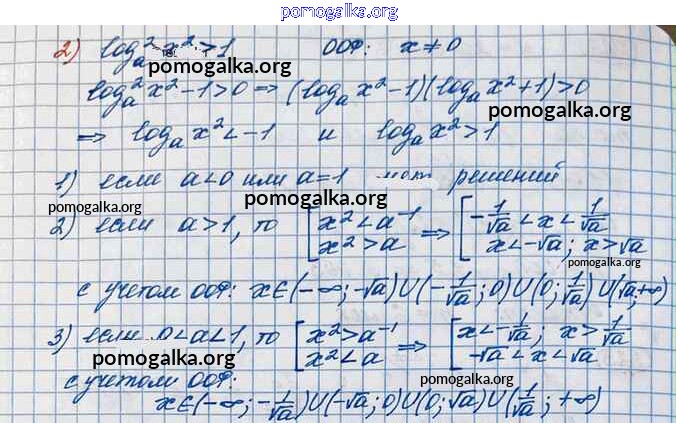 pomogalka.org
2) log²ₐ x² > 1 ООФ: x ≠ 0
pomogalka.org
log²ₐ x² - 1 > 0 => (logₐ x² - 1)(logₐ x² + 1) > 0
pomogalka.org
=> logₐ x² < -1 и logₐ x² > 1
1) если a < 0 или a = 1 решений
pomogalka.org
pomogalka.org
2) если a > 1, то [x² < a⁻¹ => [-1/√a < x < 1/√a
x² > a x < -√a; x > √a
pomogalka.org
с учетом ООФ: x ∈ (-∞; -√a) ∪ (-1/√a; 0) ∪ (0; 1/√a) ∪ (√a; +∞)
3) если 0 < a < 1, то [x² > a⁻¹ => [x < -1/√a; x > 1/√a
pomogalka.org
x² < a -√a < x < √a
с учетом ООФ:
pomogalka.org
x ∈ (-∞; -1/√a) ∪ (-√a; 0) ∪ (0; √a) ∪ (1/√a; +∞)